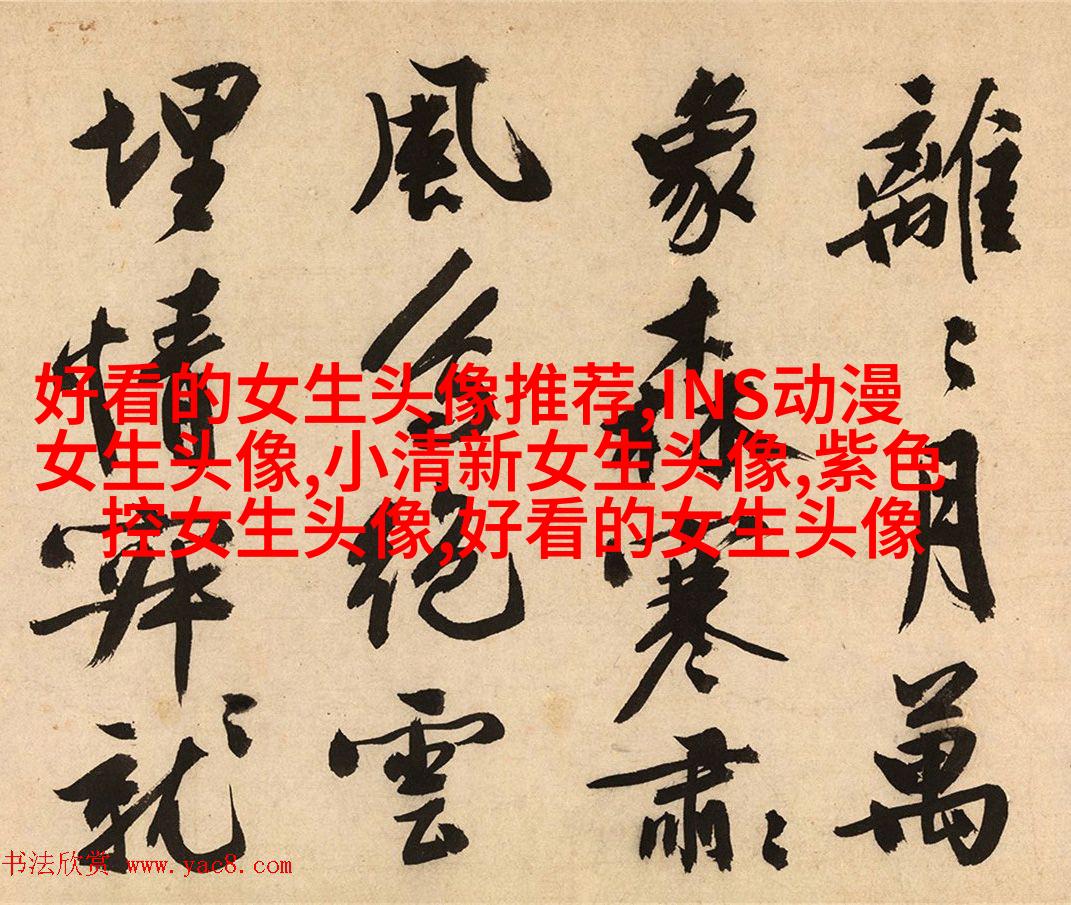 離〻月萬
象森寒肅〻
風絕雲
埋情〻就
好看的女生头像推荐,INS动漫
女生头像,小清新女生头像,紫色
控女生头像,好看的女生头像
书法欣赏 www.yac8.com